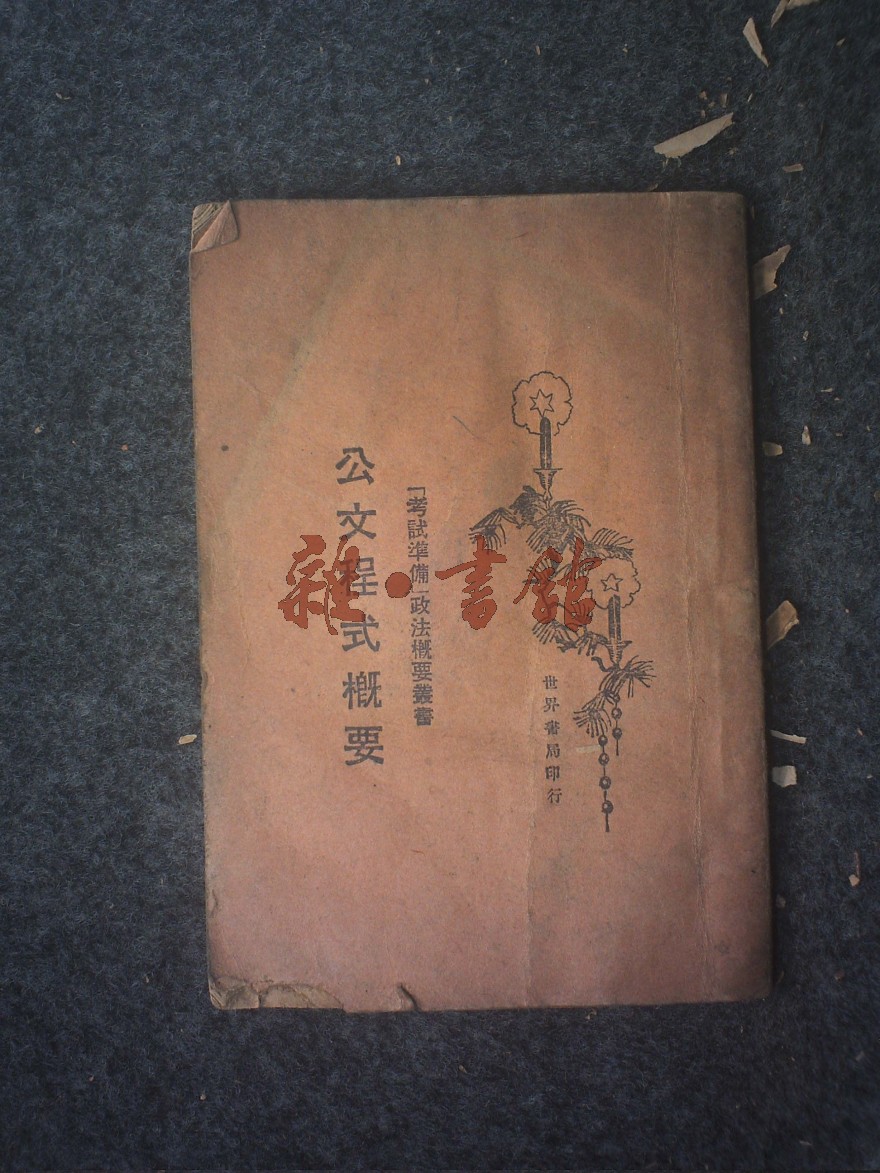 「考試準備」政法概要叢書
公文程式概要
世界書局印行
雜·書館